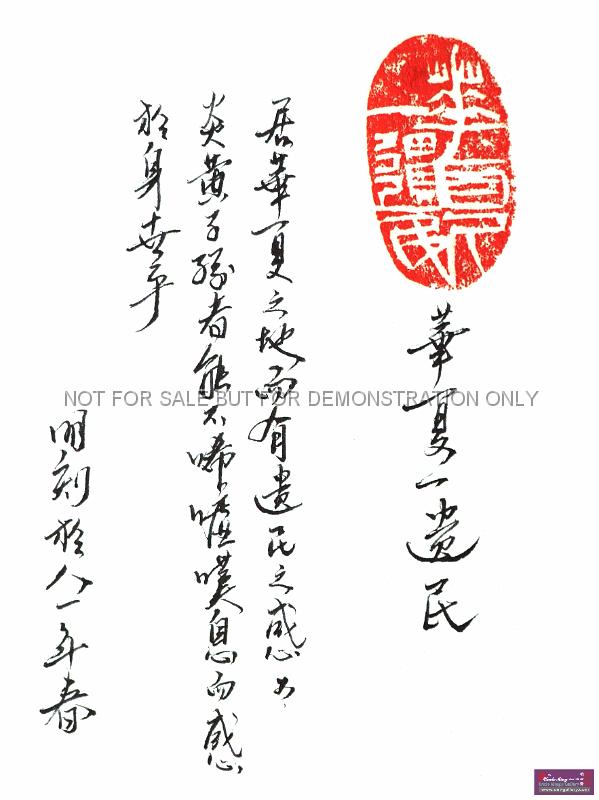 華夏一遺民
華夏一遺民
居華夏之地而有遺民之感為
炎黃子孫者能不唏噓嘆息而感
於身世乎
明刻於八一年春
NOT FOR SALE BUT FOR DEMONSTRATION ONLY